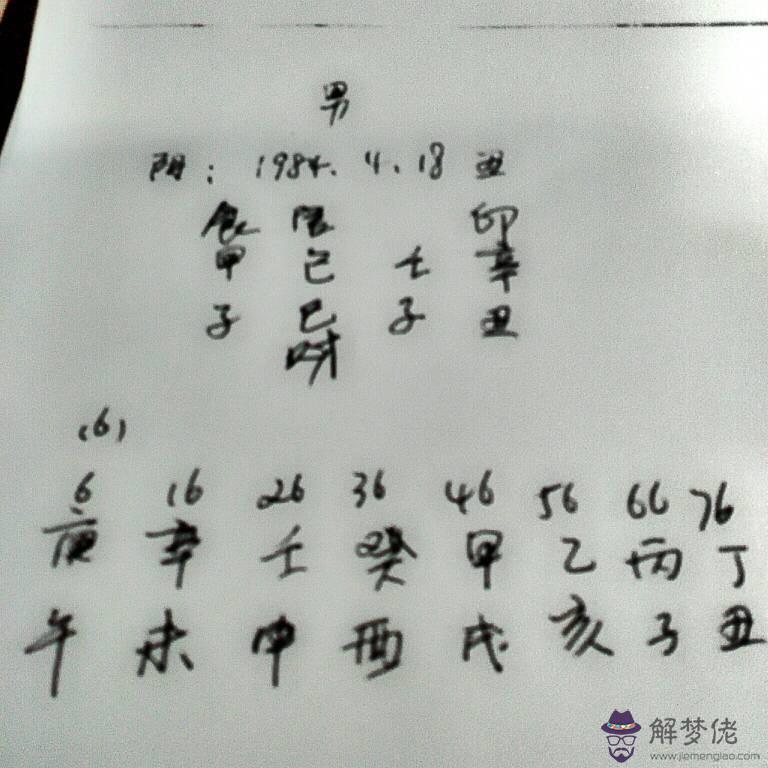 男
阴：1984.4.18 丑
食 官 印
甲 己 壬 辛
子 巳 子 丑
财
(6)
6 16 26 36 46 56 66 76
庚 辛 壬 癸 甲 乙 丙 丁
午 未 申 酉 戌 亥 子 丑
解梦佬
www.jiemenglao.com